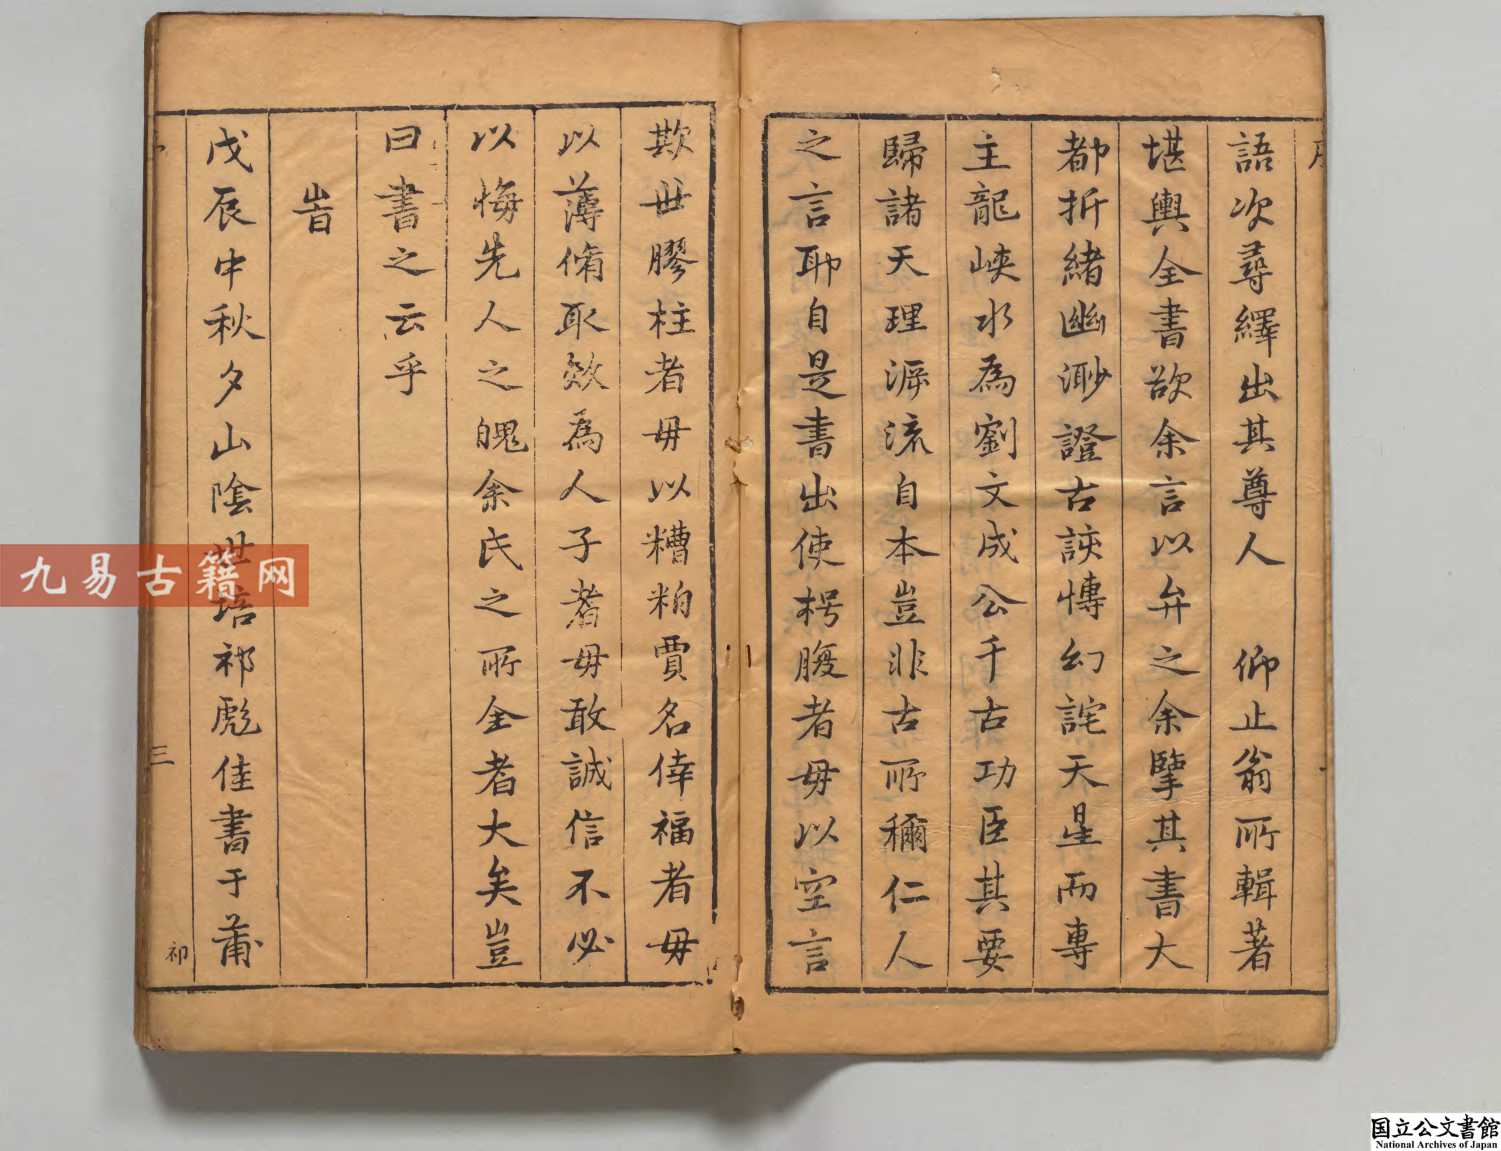 語次尋繹出其尊人 仰止翁所輯著
堪輿全書欲余言以弁之余擥其書大
都折緒幽渺證古詼慱幻詫天星而專
主龍峽水為劉文成公千古功臣其要
歸諸天理源流自本豈非古所稱仁人
之言耶自是書出使枵腹者毋以空言
欺世膠柱者毋以糟粕賈名倖福者毋
以薄脩取效為人子者毋敢誠信不必
以悔先人之魄余氏之所全者大矣豈
曰書之云乎
旹
戊辰中秋夕山陰世培祁彪佳書于莆
三
祁
九易古籍网
国立公文書館
National Archives of Japan